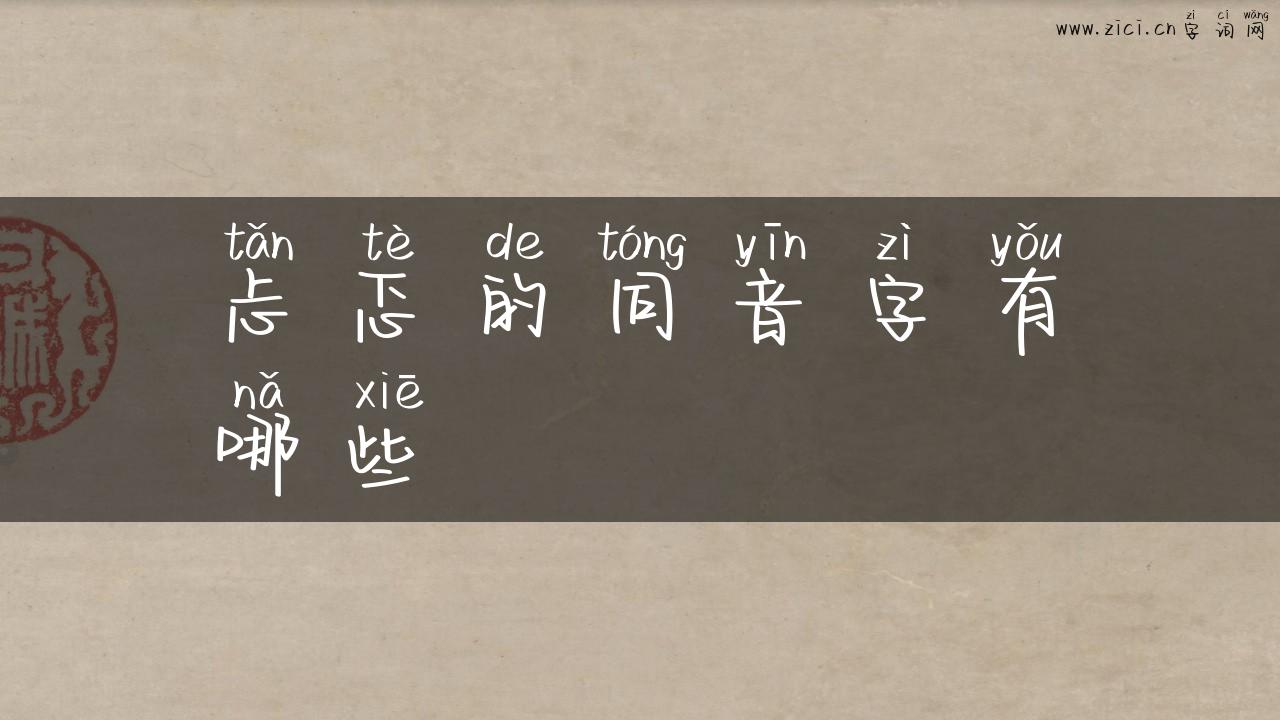 zì cí wǎng
www.zici.cn 字词网
tǎn tè de tóng yīn zì yǒu
忐忑的同音字有
nǎ xiē
哪些